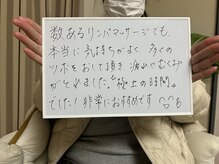 数あるリンパマッサージでも、
本当に気持ちがよく、多くの
ツボをおして頂き 疲れやむくみ
がとれました。"極上の時間"
でした！非常におすすめです